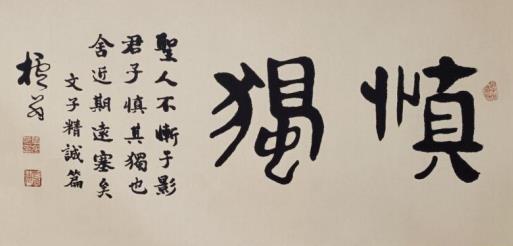 慎獨
聖人不慚于影
君子慎其獨也
舍近期遠塞矣
文子精誠篇